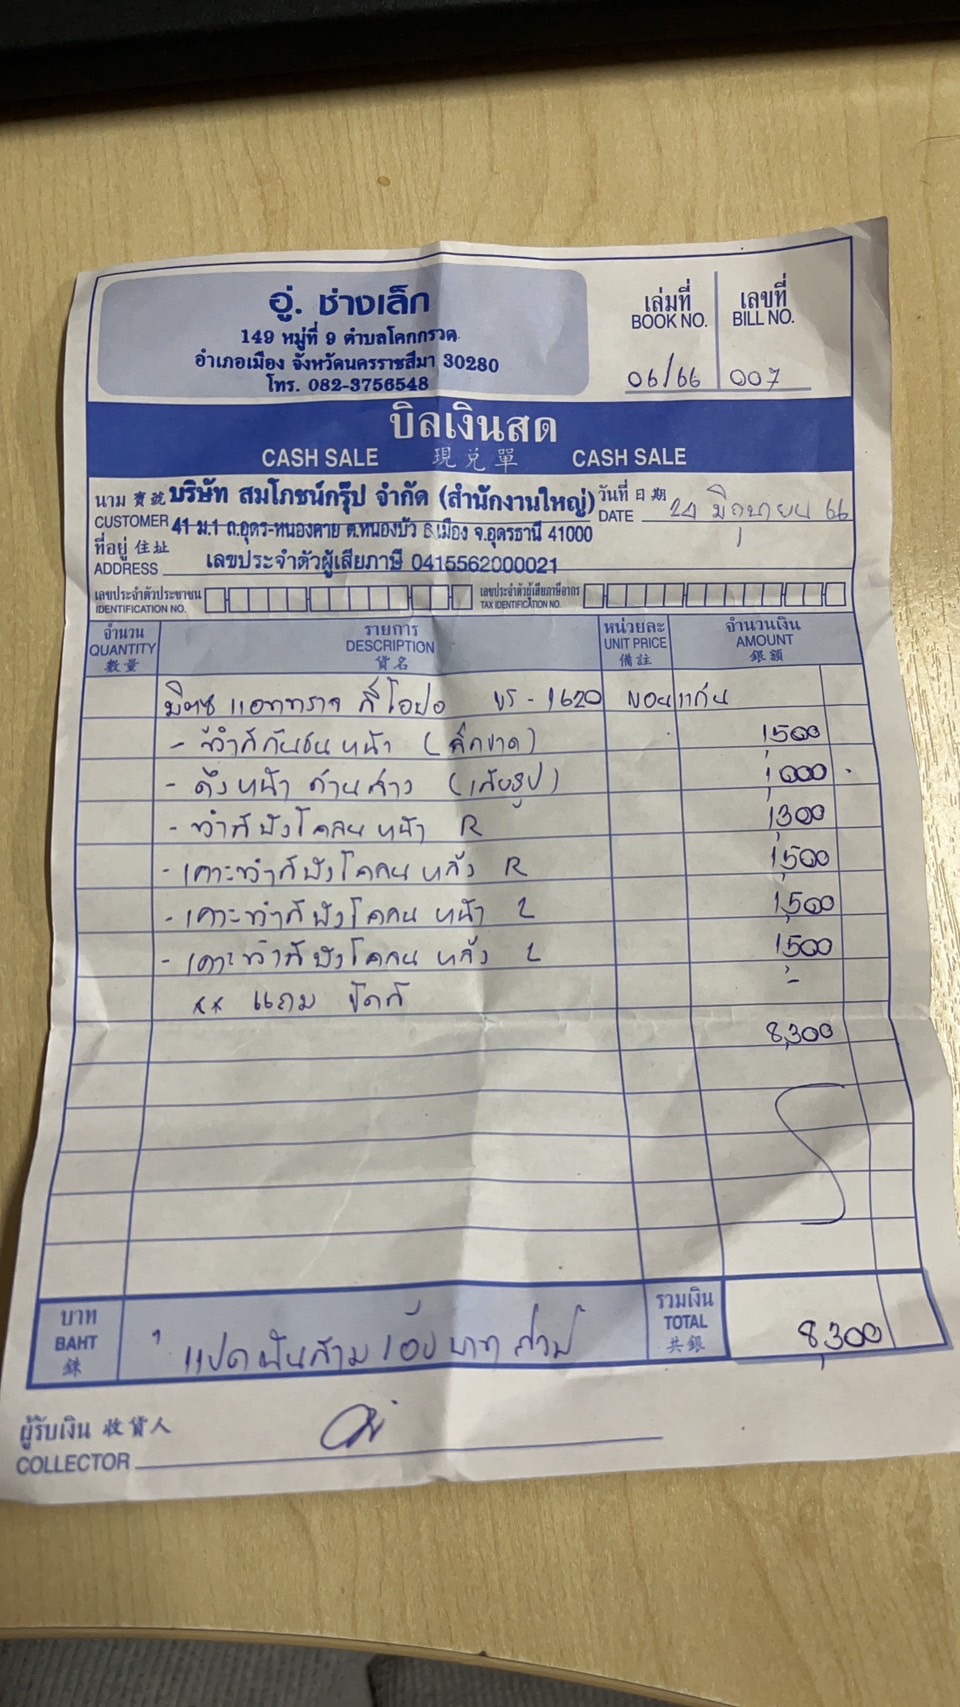 อู่. ช่างเล็ก
149 หมู่ที่ 9 ตำบลโคกกรวด
อำเภอเมือง จังหวัดนครราชสีมา 30280
โทร. 082-3756548
เล่มที่ เลขที่
BOOK NO. BILL NO.
06/66 007
บิลเงินสด
CASH SALE 現兌單 CASH SALE
นาม 寶號 บริษัท สมโภชน์กรุ๊ป จำกัด (สำนักงานใหญ่) วันที่ 日期
CUSTOMER 41 ม.1 ถ.อุดร-หนองคาย ต.หนองบัว อ.เมือง จ.อุดรธานี 41000 DATE 24 มิถุนายน 66
ที่อยู่ 住址
ADDRESS เลขประจำตัวผู้เสียภาษี 0415562000021
เลขประจำตัวประชาชน เลขประจำตัวผู้เสียภาษีอากร
IDENTIFICATION NO. TAX IDENTIFICATION NO.
จำนวน รายการ หน่วยละ จำนวนเงิน
QUANTITY DESCRIPTION UNIT PRICE AMOUNT
數量 貨名 備註 銀額
มิตซู แอททราจ สีไอปอ ขร - 1620 ขอนแก่น
- ทำสีกันชนหน้า ( ) 1,500
- ดึงหน้า ด้านล่าง (เสียรูป) 1,000
- ทำสีบังโคลนหน้า R 1,300
- เคาะทำสีบังโคลน หลัง R 1,500
- เคาะทำสีบังโคลน หน้า L 1,500
- เคาะทำสีบังโคลน หลัง L 1,500
** แถม ขัดสี -
8,300
บาท รวมเงิน
BAHT แปดพันสามร้อยบาทถ้วน TOTAL 8,300
銖 共銀
ผู้รับเงิน 收貨人
COLLECTOR